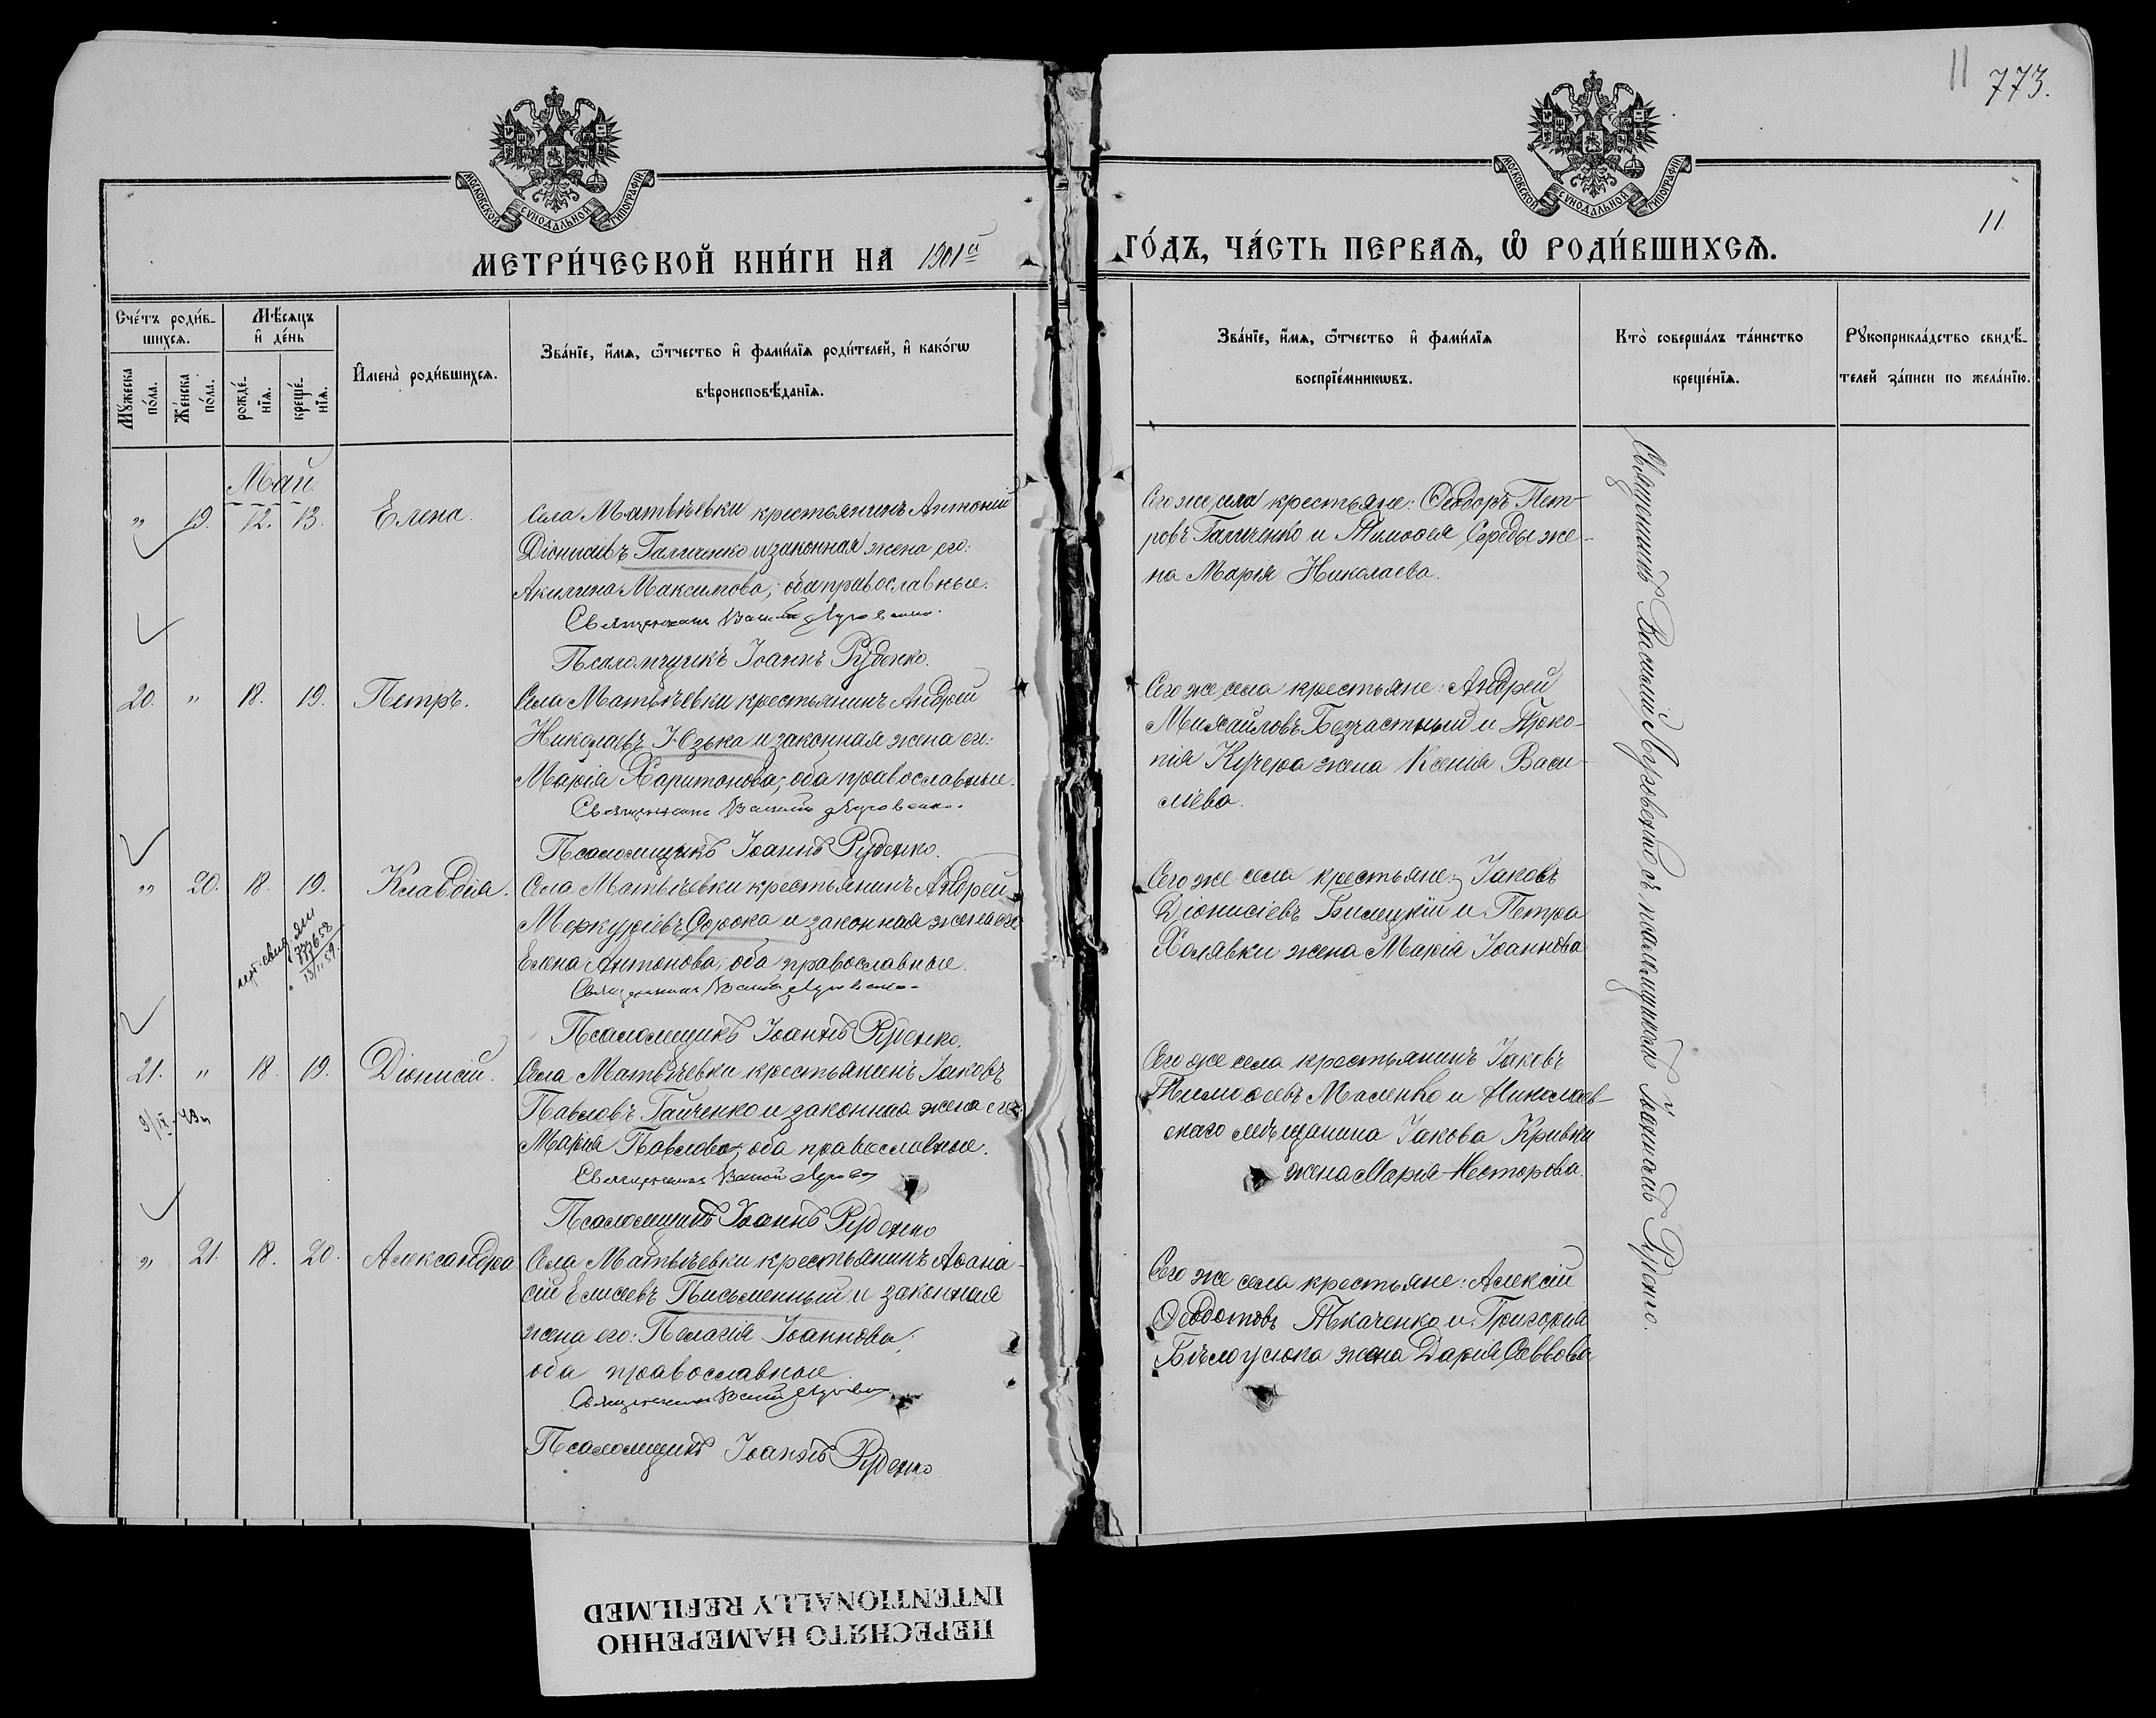 11 773.
МОСКОВСКОЙ СѴНОДАЛЬНОЙ ТИПОГРАФІИ
МОСКОВСКОЙ СѴНОДАЛЬНОЙ ТИПОГРАФІИ
11
МЕТРИ́ЧЕСКОЙ КНИ́ГИ НА 1901й
ГО́ДЪ, ЧА́СТЬ ПЕРВАѦ, Ѽ РОДИ́ВШИХСѦ.
Сче́тъ роди́в-
шихсѧ.
Мꙋжеска по́ла.
Же́нска по́ла.
Мѣ́сѧцъ
и҆ де́нь
рожде́-
нїѧ.
креще́-
нїѧ.
И҆мена̀ роди́вшихсѧ.
Зва́нїе, и҆́мѧ, ѻ҆́тчество и҆ фами́лїѧ роди́телей, и҆ како́гѡ
вѣроисповѣ́данїѧ.
Зва́нїе, и҆́мѧ, ѻ҆́тчество и҆ фами́лїѧ
воспрїе́мникѡвъ.
Кто̀ соверша́лъ та́инство
креще́нїѧ.
Рꙋкоприкла́дство свидѣ́-
телей за́писи по жела́нїю.
Май
" 19. 12. 13. Елена.
Села Матвѣевки крестьянинъ Антоній
Діонисіевъ Галиченко и законная жена его:
Акилина Максимова; оба православные.
Священникъ Василій Яровенко.
Псаломщикъ Іоаннъ Руденко.
Сего же села крестьяне: Ѳеодоръ Пет-
ровъ Галиченко и Тимоѳея Середы же-
на Марія Николаева.
20. " 18. 19. Петръ.
Села Матвѣевки крестьянинъ Андрей
Николаевъ Юзька и законная жена его:
Марія Харитонова; оба православные.
Священникъ Василій Яровенко.
Псаломщикъ Іоаннъ Руденко.
Сего же села крестьяне: Андрей
Михайловъ Безчастный и Проко-
пія Кучера жена Ксенія Васи-
ліева.
" 20. 18. 19. Клавдія.
Села Матвѣевки крестьянинъ Андрей
Меркуріевъ и законная жена его
Елена Антонова; оба православные.
Священникъ Василій Яровенко
Псаломщикъ Іоаннъ Руденко.
Сего же села крестьяне: Іаковъ
Діонисіевъ Билецкій и Петра
Халявки жена Марія Іоаннова
21. " 18. 19. Діонисій.
Села Матвѣевки крестьянинъ Іаковъ
Павловъ Гайченко и законная жена его
Марія Павлова; оба православные.
Священникъ Василій
Псаломщикъ Іоаннъ Руденко
Сего же села крестьянинъ Іаковъ
Тимоѳеевъ Маленко и Николаев-
скаго мѣщанина Іакова Кривки
жена Марія Несторова.
" 21. 18. 20. Александра
Села Матвѣевки крестьянинъ Аѳана-
сій Елисеевъ Письменный и законная
жена его: Пелагія Іоаннова;
оба православные.
Священникъ Василій
Псаломщикъ Іоаннъ Руденко
Сего же села крестьяне: Алексій
Ѳеодотовъ Ткаченко и Григорія
Бѣлоусюка жена Дарія Саввова
Священникъ Василій Яровенко съ псаломщикомъ Іоанномъ Руденко.
ПЕРЕСНЯТО НАМЕРЕННО
INTENTIONALLY REFILMED